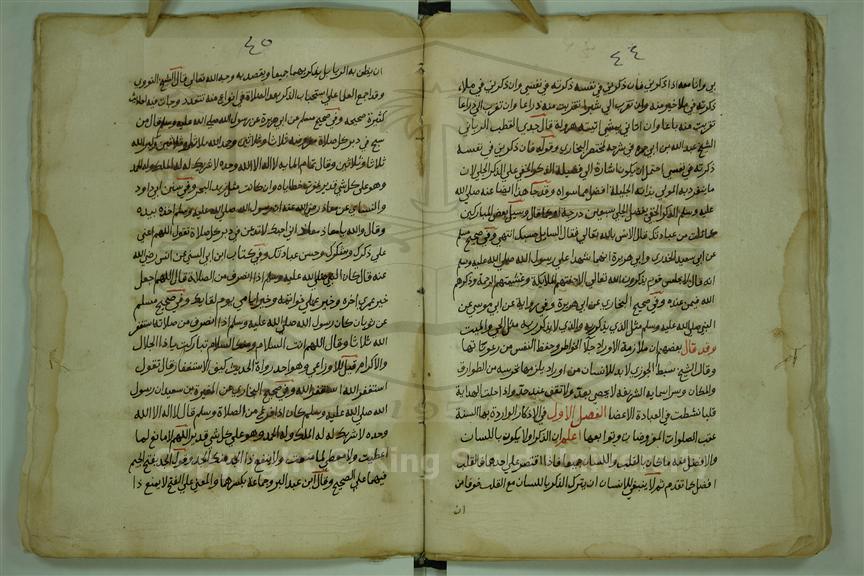 ٤٤
بي وانا معه اذا ذكرني فان ذكرني في نفسه ذكرته في نفسي وان ذكرني في ملاء
ذكرته في ملاء خير منه وان تقرب الي شبرا تقربت منه ذراعا وان تقرب الي ذراعا
تقربت منه باعا وان اتاني يمشي اتيته هرولة قال جدي القطب الرباني
الشيخ عبدالله بن ابي جمره في شرحه لمختصر البخاري وقوله فان ذكرني في نفسه
ذكرته في نفسي احتمل ان يكون اشارة الي فضيلة الذكر الخفي علي الذكر الجلي لان
ما ينفرد به المولي بذاته الجليلة افضل مما سواه وقد جا هذا ايضا عنه صلي الله
عليه وسلم الذكر الخفي يفضل الجلي سبعين درجة او كما قال وسيل بعض المباركين
علامات من عبادتك قال الانس بالله تعالي فقال السايل حسبك انتهي وفي صحيح مسلم
عن ابي سعيد الخدري وابي هريرة انهما شهدا علي رسول الله صلي الله عليه وسلم
انه قال لا يجلس قوم يذكرون الله تعالي الا حفتهم الملايكة وغشيتهم الرحمة وذكرهم
الله فيمن عنده وفي صحيح البخاري عن ابي هريرة وفي رواية عن ابي موسي عن
النبي صلي الله عليه وسلم مثل الذي يذكر ربه والذي لا يذكر ربه مثل الحي والميت
وقد قال بعضهم ان ملازمة الاوراد جلا الخواطر وحفظ النفس من رعوناتها
وقال الشيخ سبط الجوزي لابد للانسان من اوراد يلزمها تحرسه من الطوارق
والمكان وسر اسمايه الشريفة لا يحصي بعد ولا تقف عند حد واذا حلت الهداية
قلبا نشطت في العبادة الاعضا الفصل الاول في الاذكار الواردة بها السنة
عقب الصلوات المفروضات وتوابعها اعلم ان الذكر اولا يكون باللسان
والافضل منه ما كان بالقلب واللسان جميعا فاذا اقتصر علي احدهما فالقلب
افضل كما تقدم ثم لا ينبغي للانسان ان يترك الذكر باللسان مع القلب خوفا من
ان
٤٥
ان يظن به الريا بل يذكر بهما جميعا ويقصد به وجه الله تعالي قال الشيخ النووي
وقد اجمع العلماء علي استحباب الذكر بعد الصلاة في انواع منه تتعدد وجات فيه احاديث
كثيرة صحيحة وفي صحيح مسلم عن ابي هريرة عن رسول الله صلي الله عليه وسلم قال من
سبح في دبر كل صلاة ثلاثا وثلاثين وحمد الله ثلاثا وثلاثين وكبر الله
ثلاثا وثلاثين وقال تمام الماية لا اله الا الله وحده لا شريك له له الملك وله الحمد
وهو علي كل شي قدير غفرت خطاياه وان كانت مثل زبد البحر وفي سنن ابي داود
والنساي عن معاذ رضي الله عنه ان رسول الله صلي الله عليه وسلم اخذ بيده
وقال والله يا معاذ اني احبك لا تدعن في دبر كل صلاة تقول اللهم اعني
علي ذكرك وشكرك وحسن عبادتك وفي كتاب ابن السني عن انس رضي الله
عنه قال كان النبي صلي الله عليه وسلم اذا انصرف من الصلاة قال اللهم اجعل
خير عمري اخره وخير عملي خواتمه وخير ايامي يوم لقايك وفي صحيح مسلم
عن ثوبان كان رسول الله صلي الله عليه وسلم اذا انصرف من صلاته استغفر
الله ثلاثا وقال اللهم انت السلام ومنك السلام تباركت يا ذا الجلال
والاكرام قيل للاوزاعي وهو احد رواة الحديث كيف الاستغفار قال تقول
استغفر الله استغفر الله وفي صحيح البخاري عن المغيرة بن شعبة ان رسول
الله صلي الله عليه وسلم كان اذا فرغ من الصلاة وسلم قال لا اله الا الله
وحده لا شريك له له الملك وله الحمد وهو علي كل شي قدير اللهم لا مانع لما
اعطيت ولا معطي لما منعت ولا ينفع ذا الجد منك الجد بفتح الجيم
فيهما علي الصحيح وقال ابن عبد البر وجماعة بكسرهما والمعني علي الفتح لا ينفع ذا